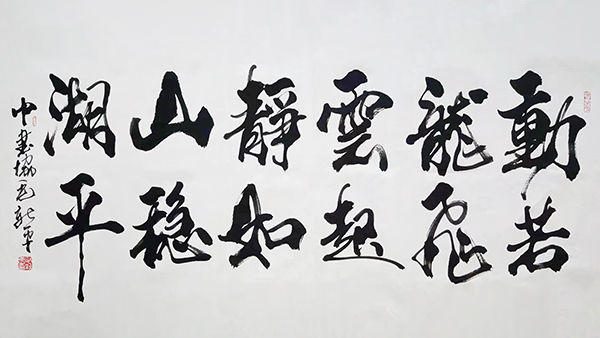 動若
龍飛
雲起
靜如
山稳
湖平
中書協